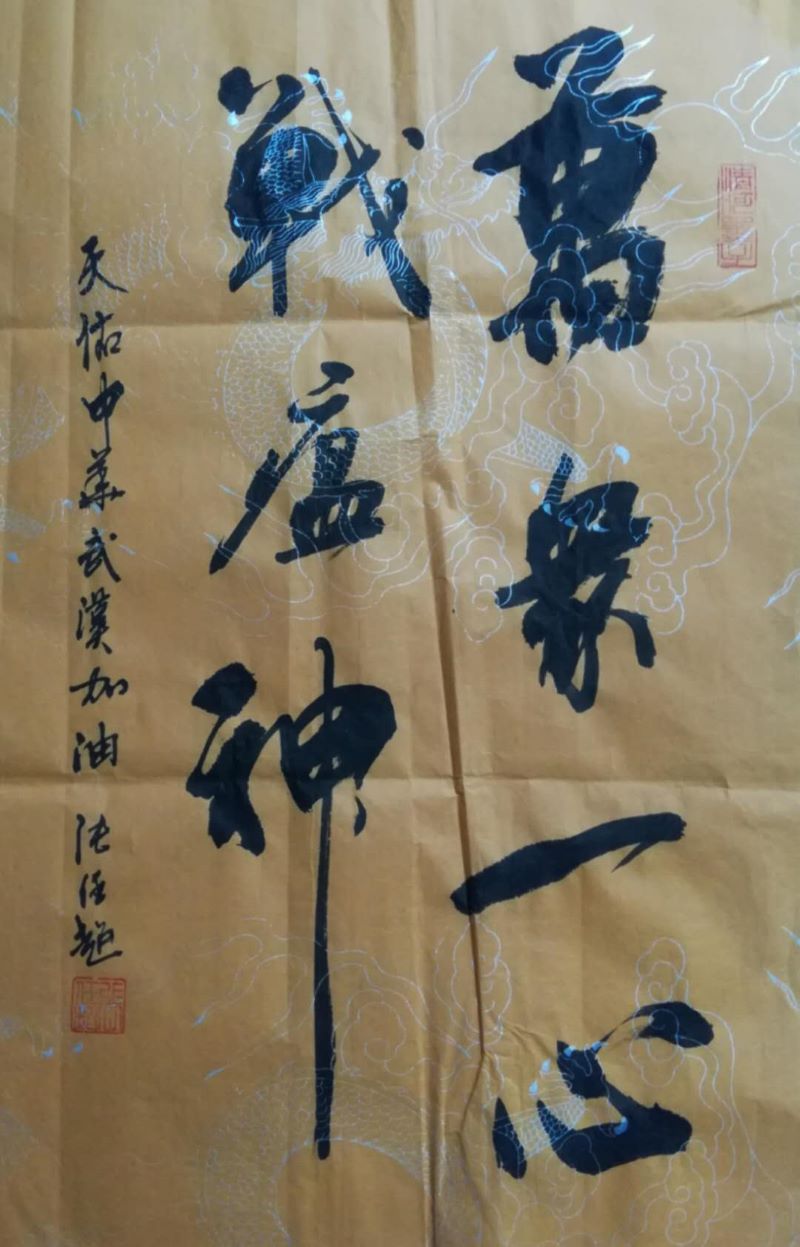 萬衆一心
戰瘟神
天佑中華武漢加油 张任超